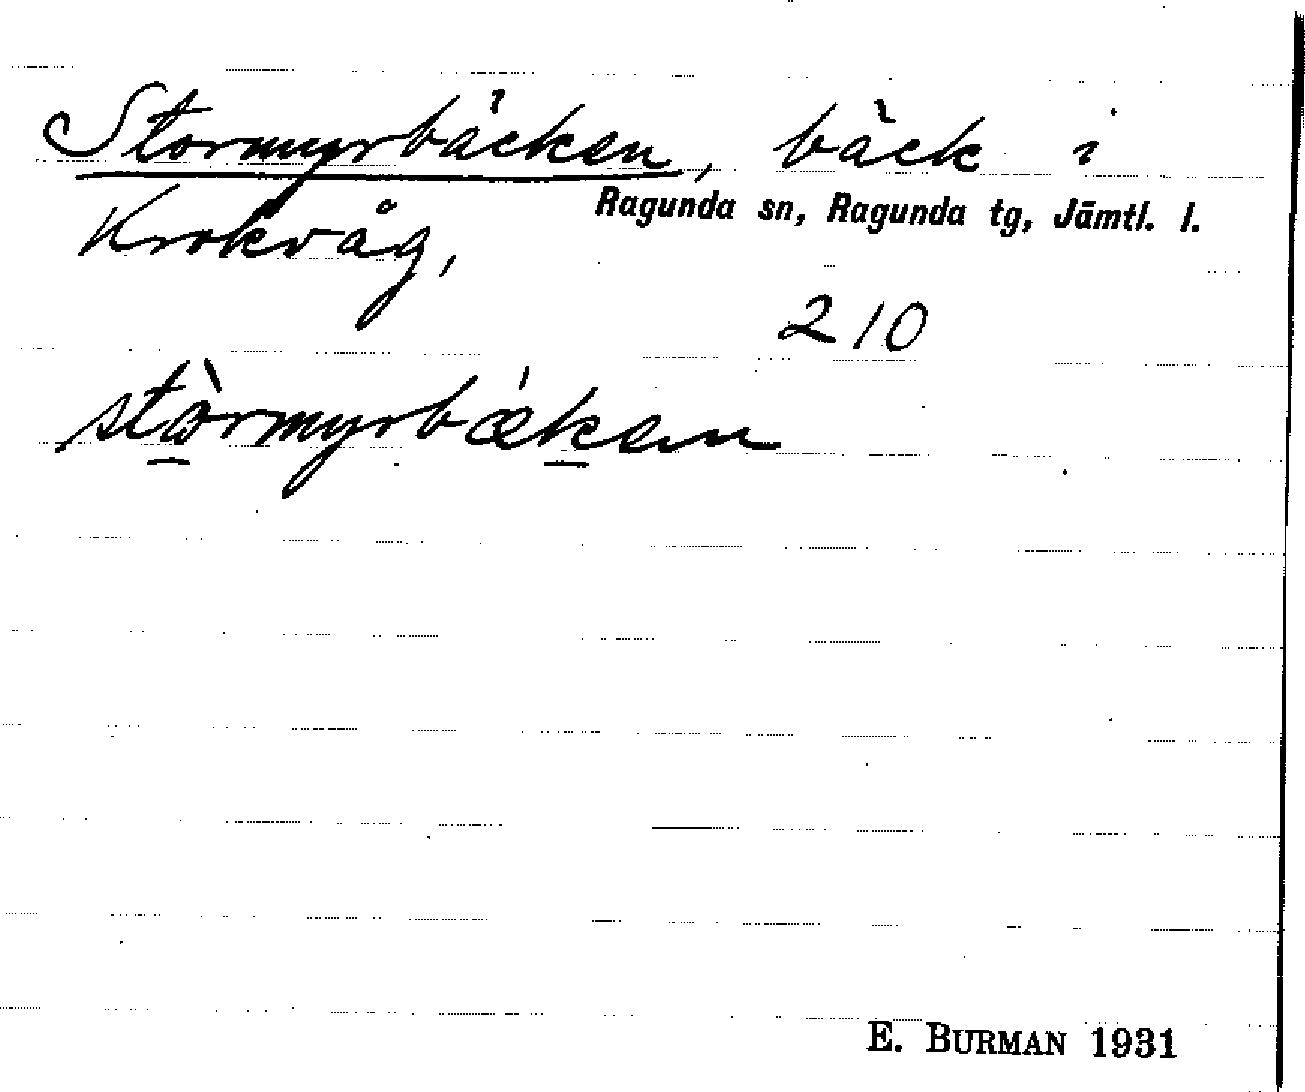 Stormyrbäcken, bäck i
Ragunda sn, Ragunda tg, Jämtl. l.
Krokvåg,
210
stòrmyrbǽksen
E. BURMAN 1931